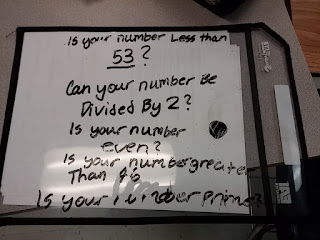 Is your number Less than
53?
Can your number Be
Divided By 2?
Is your number
even?
Is your number greater
Than 86
Is your number prime?